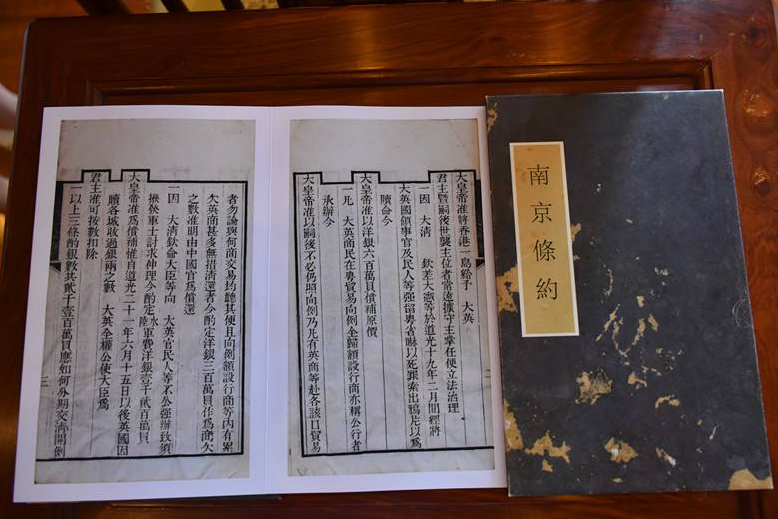 南京條約
大皇帝准將香港一島給予 大英
君主暨嗣後世襲主位者常遠據守主掌任便立法治理
一因 大清 欽差大憲等於道光十九年二月間經將
大英國領事官及民人等强留粵省嚇以死罪索出鴉片以爲
贖命今
大皇帝准以洋銀六百萬員償補原價
一凡 大英商民在粵貿易向例全歸額設行商亦稱公行者
承辦今
大皇帝准以嗣後不必仍照向例乃凡有英商等赴各該口貿易
者勿論與何商交易均聽其便且向例額設行商等內有累
欠英商甚多無措清還者今酌定洋銀三百萬員作爲商欠
之數准明由中國官爲償還
一因 大清欽命大臣等向 大英官民人等不公强辦致須
撥發軍士討求伸理今酌定水陸軍費洋銀壹千貳百萬員
大皇帝准爲償補惟自道光二十一年六月十五日以後英國因
贖各城收過銀兩之數 大英全權公使大臣爲
君主准可按數扣除
一以上三條酌銀數共貳千壹百萬員應如何分期交清開列